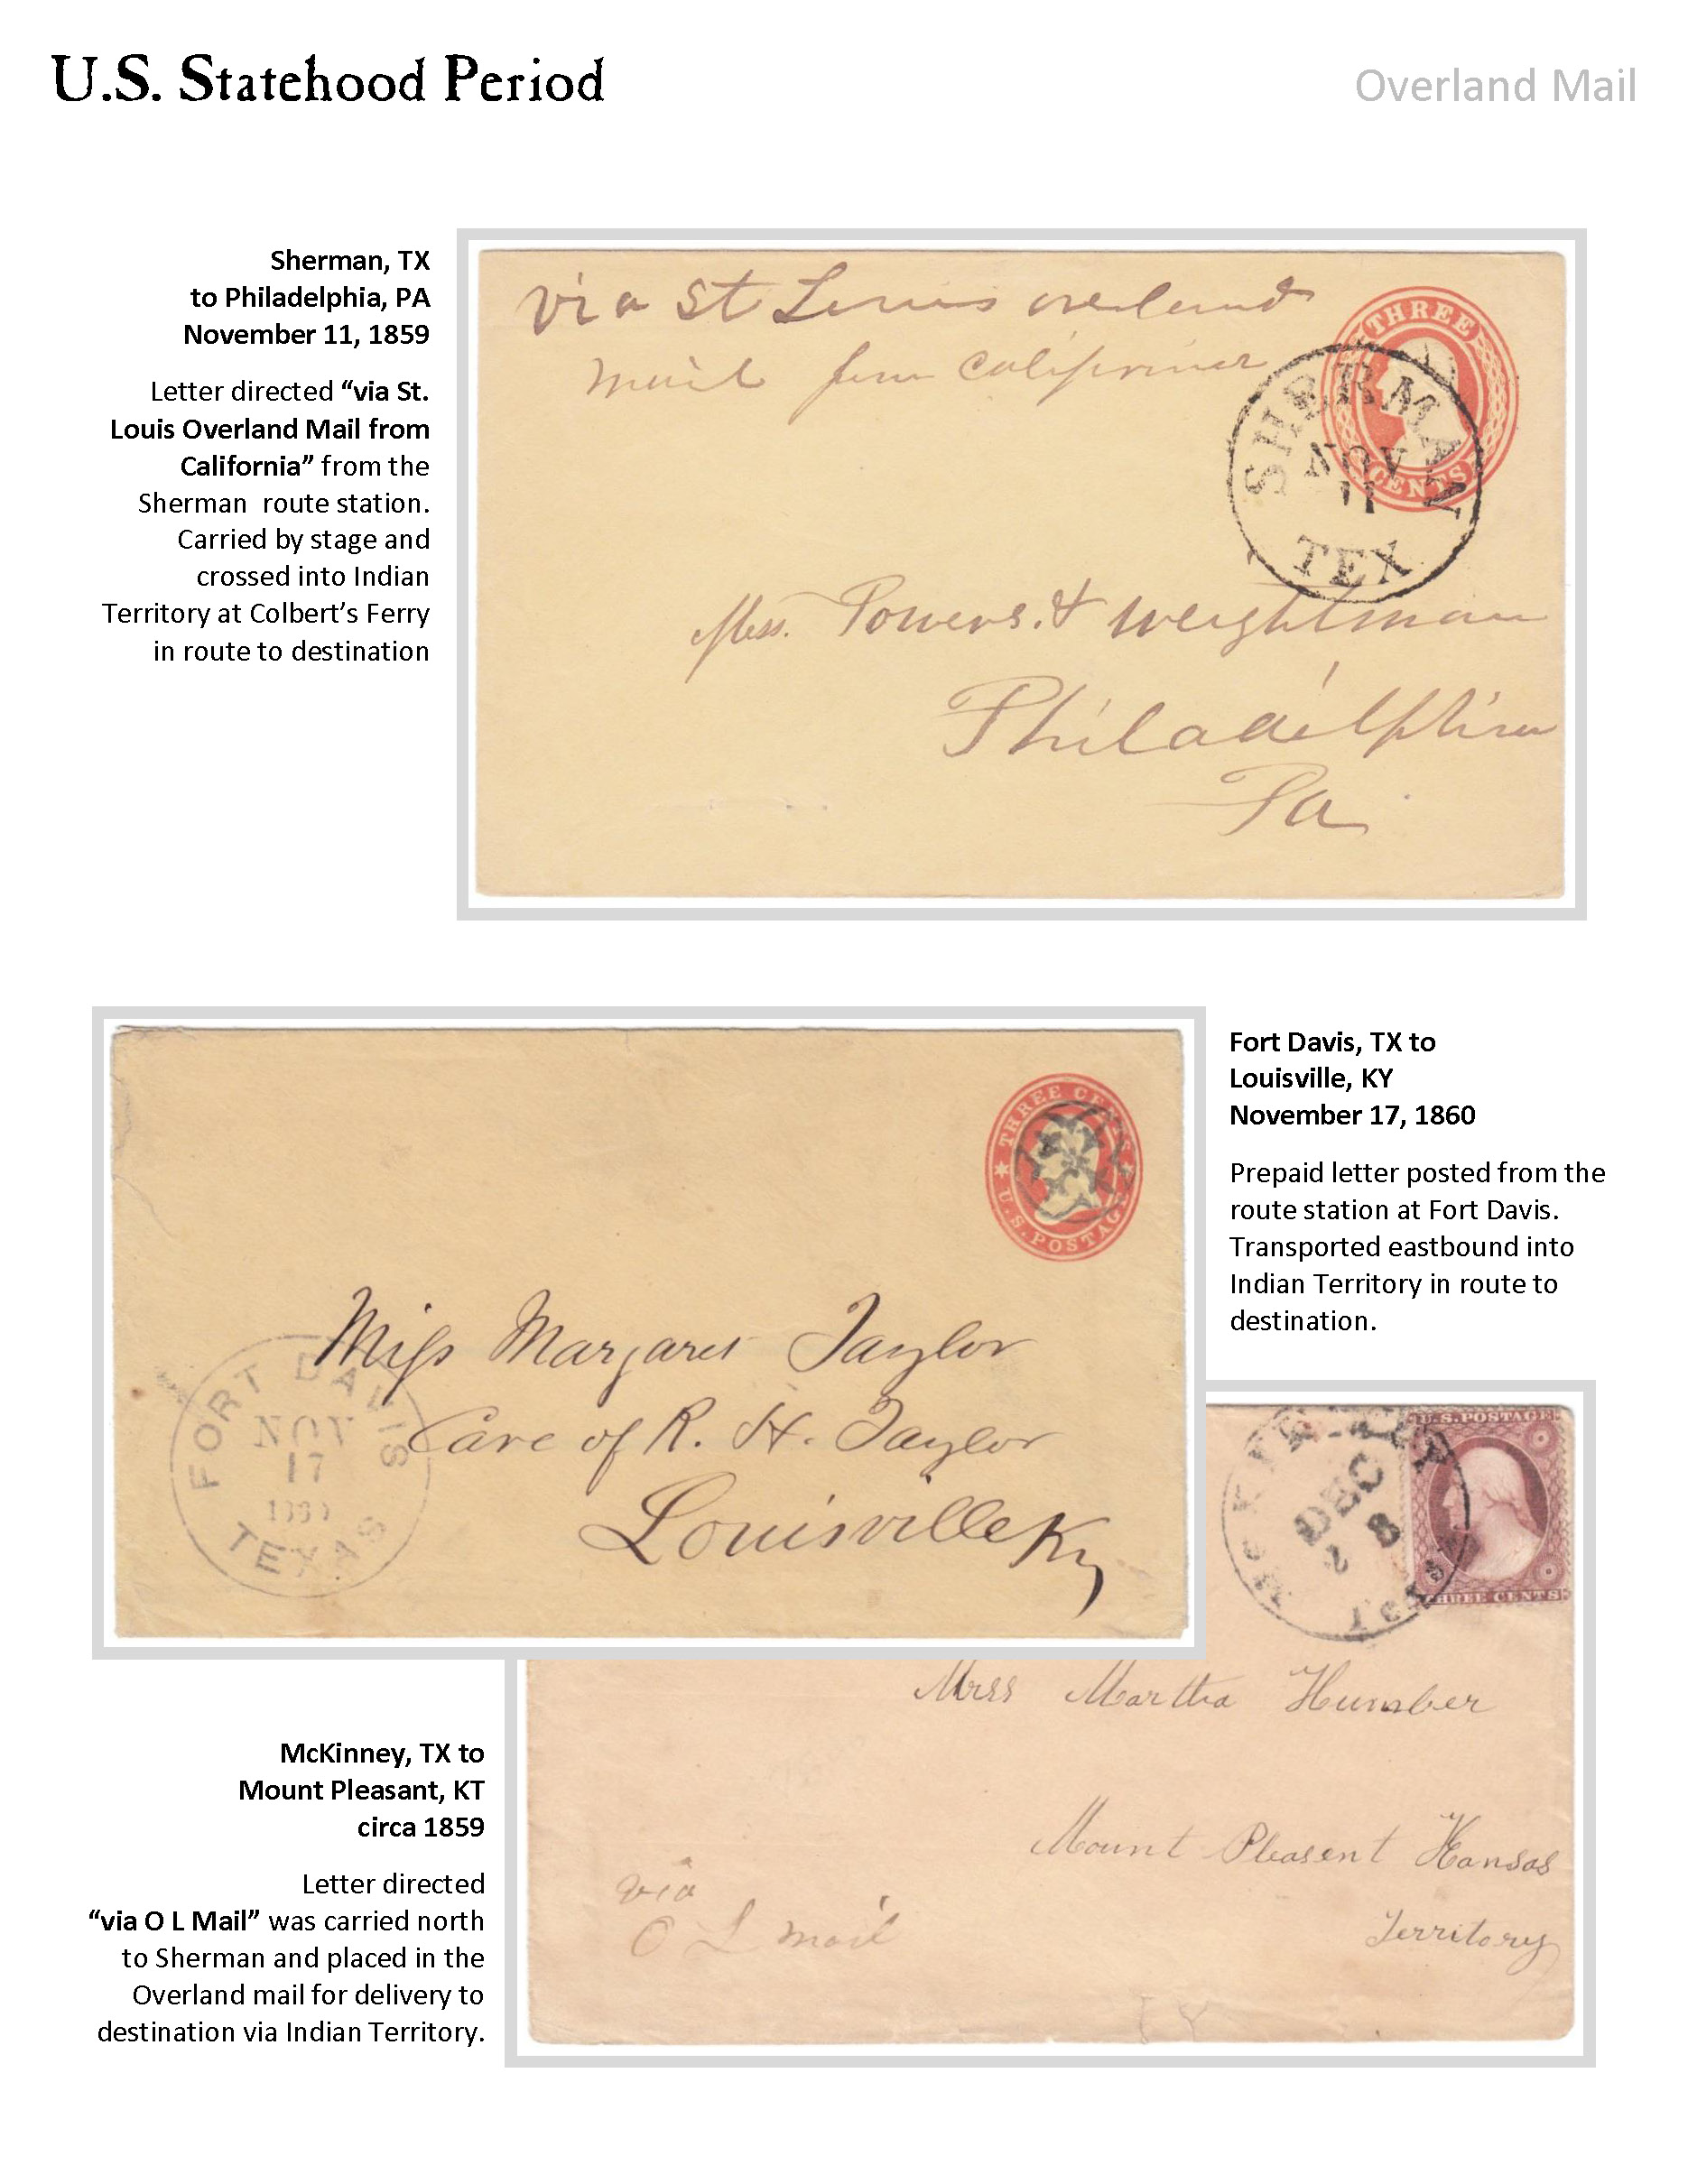 U.S. Statehood Period
Overland Mail
Sherman, TX
to Philadelphia, PA
November 11, 1859
Letter directed “via St.
Louis Overland Mail from
California” from the
Sherman route station.
Carried by stage and
crossed into Indian
Territory at Colbert’s Ferry
in route to destination
via St Louis overland
mail from California
THREE
CENTS
SHERMAN
NOV
11
TEX
Mess. Powers & Weightman
Philadelphia
Pa
Fort Davis, TX to
Louisville, KY
November 17, 1860
Prepaid letter posted from the
route station at Fort Davis.
Transported eastbound into
Indian Territory in route to
destination.
THREE CENTS
U.S. POSTAGE
Miss Margaret Taylor
Care of R. H. Taylor
Louisville Ky
FORT DAVIS
NOV
17
TEXAS
U.S. POSTAGE
THREE CENTS
McKINNEY
DEC
8
Texas
Mrss Martha Humber
Mount Pleasent Kansas
Territory
via
O L mail
McKinney, TX to
Mount Pleasant, KT
circa 1859
Letter directed
“via O L Mail” was carried north
to Sherman and placed in the
Overland mail for delivery to
destination via Indian Territory.